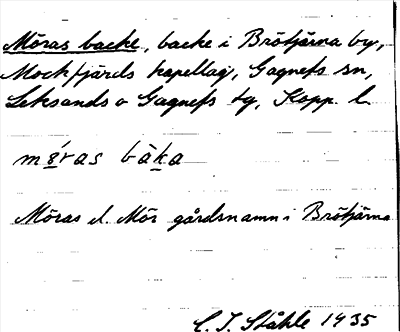 Möras backe, backe i Brötjärna by,
Mockfjärds kapellag, Gagnefs sn,
Leksands o Gagnefs tg, Kopp. l.
mö́ras bàka
Möras el. Mör gårdsnamn i Brötjärna
C. I. Ståhle 1935